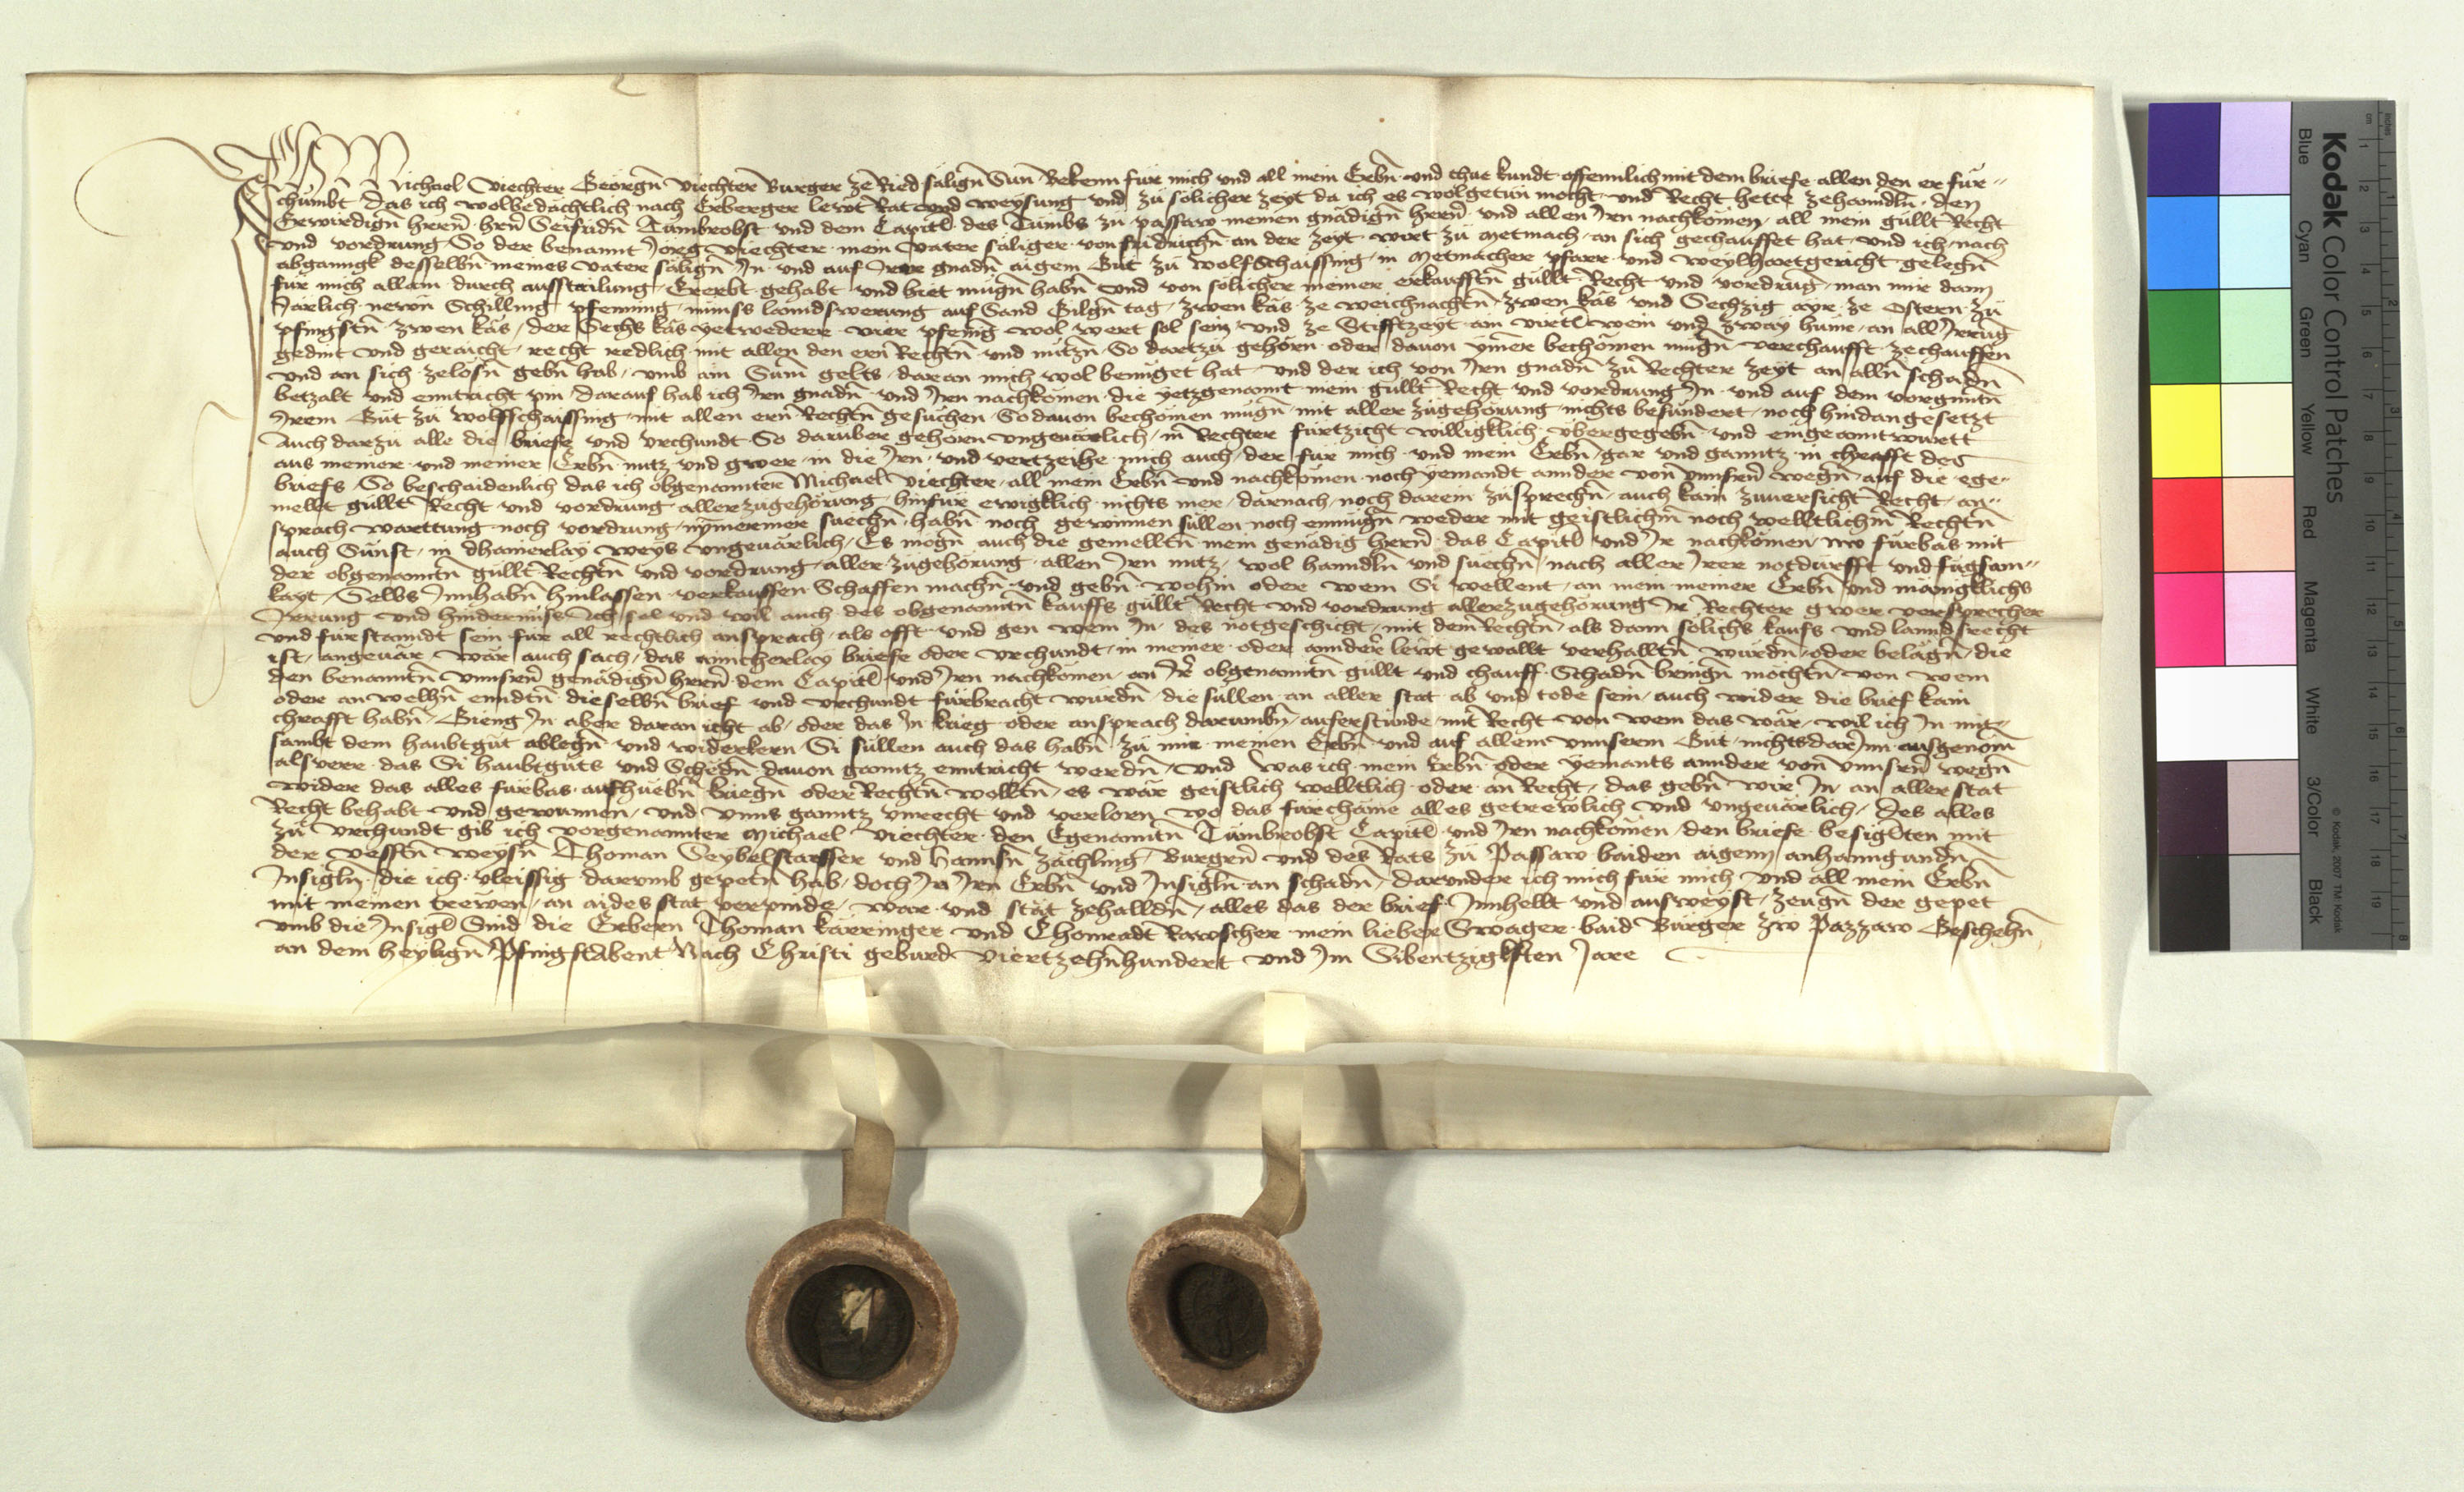 Ich Michael Viechter Geörgn̄ Viechter Burger ze Ried säligñ Sun Bekenn für mich und all mein Erbñ und thue kundt offennlich mit dem briefe allen den er für-
chümbt Das ich wolbedächtlich nach Erberger lewt Rat und weysung und zü sölicher zeyt da ich es wolgetün mocht und Recht hette zehanndlñ, den
Erwirdigñ herrñ hrñ Seifridñ Tümbrobst und dem Capitl des Tümbs zu passaw meinen gnädigñ herrñ und allen Irn nachkömen, all mein güllt Recht
und vordrung So der benannt Jörg Viechter mein vater säliger von fridrichñ an der zeyt wirt zü Metmach an sich gechauffet hat und ich nach
abganngk desselbñ meines vater säligñ In und auf Irer gnadñ aigem Güt zü wolfschaissing in Metmacher pfarr und weylhartgericht gelegñ
für mich allain durch aufstailung Ererbt gehabt und hiet mügñ habñ und von sölicher meiner erkaufftñ güllt Recht und vordrug man mir dann
Järlich newn Schilling pfenning münss lanndswerung auf Sand Gilgñ tag zwen käs ze weichnachtñ zwen käs und Sechzig ayr ze Ostern zü
pfingstñ zwen käs der Sechs käs yetweder vier pfenig wol wert sol sein und ze Stifftzeyt ain virtl wein und zway hüner an all Irrüg
gedint und geraicht recht redlich mit allen den ern Rechtñ und nützñ So dartzü gehörn oder dauon ymer bechömen mügñ verchaufft zechauffen
und an sich zelösñ gebñ hab umb ain Sum gelts daran mich wol beniiget hat und der ich von Irn gnadñ zü Rechter zeyt an alln schadñ
betzalt und enntricht pin darauf hab ich Irn gnadñ und Irn nachkömen die yetzgenannt mein güllt Recht und vordrung In und auf dem vorgnntñ
Irem Güt zü wolffschaissing mit allen ern Rechtñ gesüchen So dauon bechömen mügñ mit aller zügehörung nichts besündert noch hindangesetzt
Auch darzü alle die briefe und vrchundt So darüber gehörn vngeuärlich in Rechter fürtzicht willigklich übergegebñ und eingeanntwurtt
aus meiner und meiner Erbñ nutz und gwer in die Irn und vertzeihe mich auch der für mich und mein Erbñ gar und ganntz in chrafft des
briefs So beschaidenlich das ich obgenannter Michael Viechter all mein Erbñ und nachkömen noch yemandt annder von vnnsrñ wegñ auf die ege-
mellt güllt Recht und vordrung aller zügehörung hinfür ewigklich nichts mer darnach noch darein züsprechñ auch kain zuuersicht Recht an-
sprach warttung noch vordrung nymermer suechñ habñ noch gewinnen süllen noch enmügñ weder mit geistlichm noch welltlichm Rechtñ
auch Sünst in dhainerlay weys vngeuärlich Es mögñ auch die gemelltñ mein genädig herrñ das Capitl und Ir nachkömen nw fürbas mit
der obgenanntñ güllt Rechtñ und vordrung aller zügehörung allen Irn nutz wol hanndlñ und süechñ nach aller Irer notdürfft und fügsam-
kayt Selbs Innhabñ hinlassen verkauffen Schaffen machñ und gebñ wohin oder wem Si wellent an mein meiner Erbñ und mänigklichs
Irrung und hindernüss Ich sol und wil auch des obgenanntñ kauffs güllt Recht und vordrung aller zugehörung Ir Rechter gwer versprecher
und fürstanndt sein für all rechtlich ansprach als offt und gen wem In des notgeschicht mit dem Rechtñ als dann sölichs kaufs und lanndsrecht
ist angeuär wär auch sach das ainicherlay briefe oder vrchundt in meiner oder annder lewt gewallt verhalltñ würdñ oder belägñ die
den benanntñ vnnsrñ genädigñ herrñ dem Capitl und Irn nachkömen an Ir obgenanntñ güllt und chauff Schadñ bringñ möchtñ von wem
oder an welhñ enndtñ dieselbñ brief und vrchundt fürbracht würdñ die süllen an aller stat ab und tode sein auch wider die brief kain
chrafft habñ Gieng In aber daran icht ab oder das In krieg oder ansprach darumbñ auferstünde mit Recht von wem das wär wil ich In mit-
sambt dem haubtgüt ablegñ und widerkern Si süllen auch das habñ zü mir meinen Erbñ und auf allem vnnserm Güt nichts darInn ausgenöm
alsverr das Si haubtgüts und Schedñ dauon ganntz enntricht werdñ und was ich mein Erbñ oder yemants annder von vnnsrñ wegñ
wider das alles fürbas aufhüebñ kriegñ oder Rechtñ wolltñ es wär geistlich welltlich oder an Recht das gebñ wir In an aller stat
Recht behabt und gewunnen und vnns ganntz vnrecht und verlorn wo das fürchäme alles getrewlich und vngeuärlich Des alles
zü vrchundt gib ich vorgenannter Michael Viechter den Egenanntñ Tümbrobst Capitl und Irn nachkömen den briefe besiglten mit
der vesstñ weysñ Thoman Seybelstarffer und hannsñ zächling Burgrñ und des Rats zü Passaw baiden aigenn anhanngundñ
Insiglñ die ich vleissig darumb gepetñ hab doch In Irn Erbñ und Insiglñ an schadñ darunder ich mich für mich und all mein Erbñ
mit meinen trewen an aides stat verpinde war und stät zehalldñ alles das der brief Innhellt und ausweyst zeugñ der gepet
umb die Insigl Sind die Erbern Thoman kärringer und Chonradt Rawscher mein lieber Swager baid Burger zw Pazzaw Geschehñ
an dem heyligñ Pfingstabent Nach Christi geburd viertzehnhundert und Im Sibentzigkften Jare
Kodak Color Control Patches
Blue Cyan Green Yellow Red Magenta White 3/Color Black
© Kodak, 2007 TM: Kodak
inches
cm
1 2 3 4 5 6 7 8 9 10 11 12 13 14 15 16 17 18 19
1 2 3 4 5 6 7 8